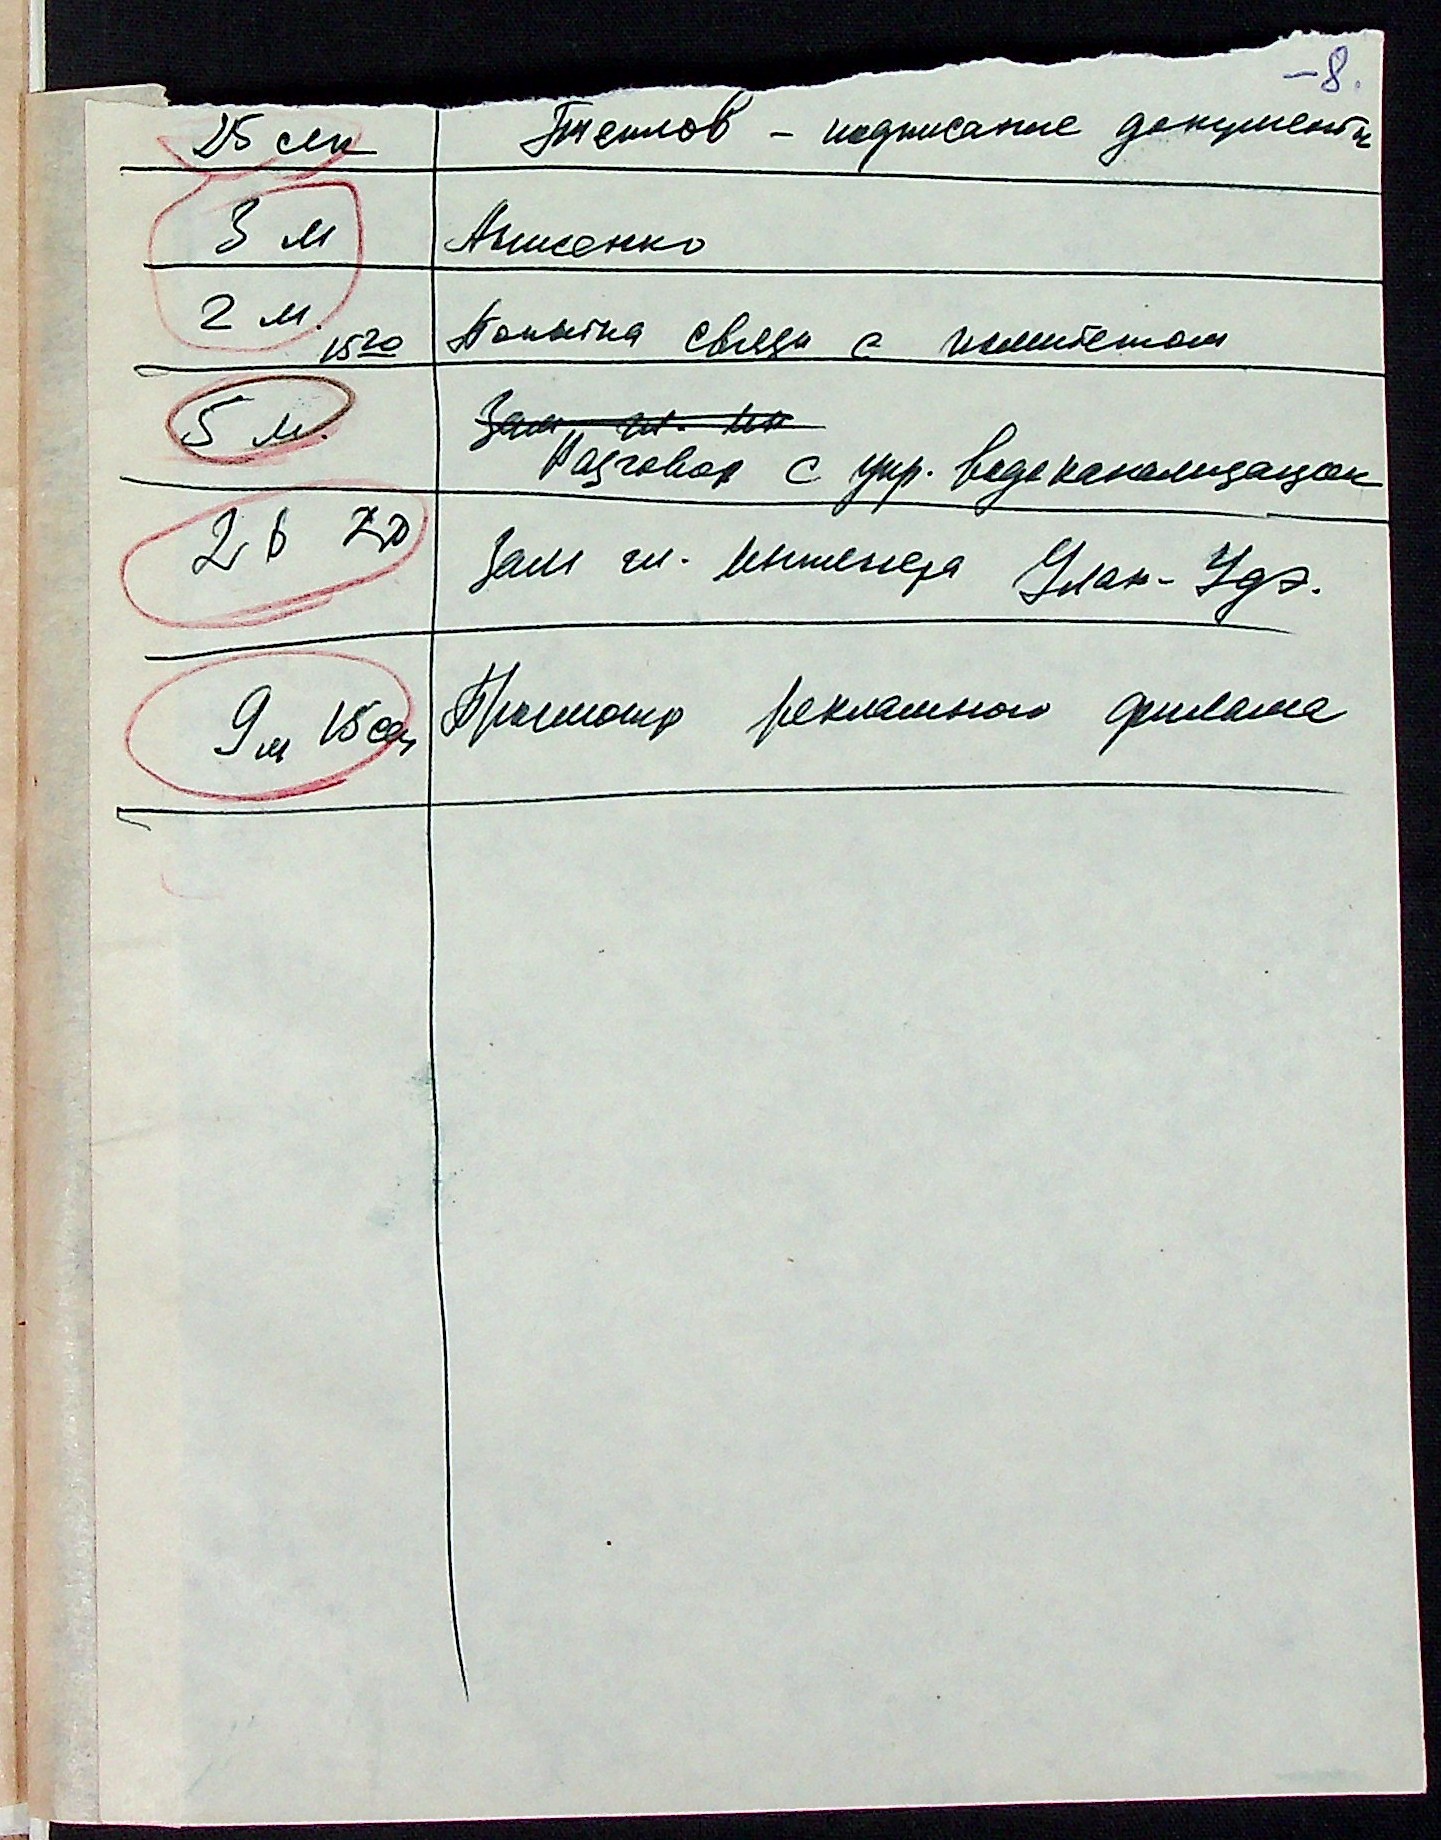 – 8.
25 сек Теплов – подписание документа
3 м Анисенко
2 м. 15 20 Попытка связи с комитетом
Зам гл. ин
5 м. Разговор с упр. водоканализации
Зам гл. инженера Улан-Удэ.
9 м 15 сек Просмотр рекламного фильма